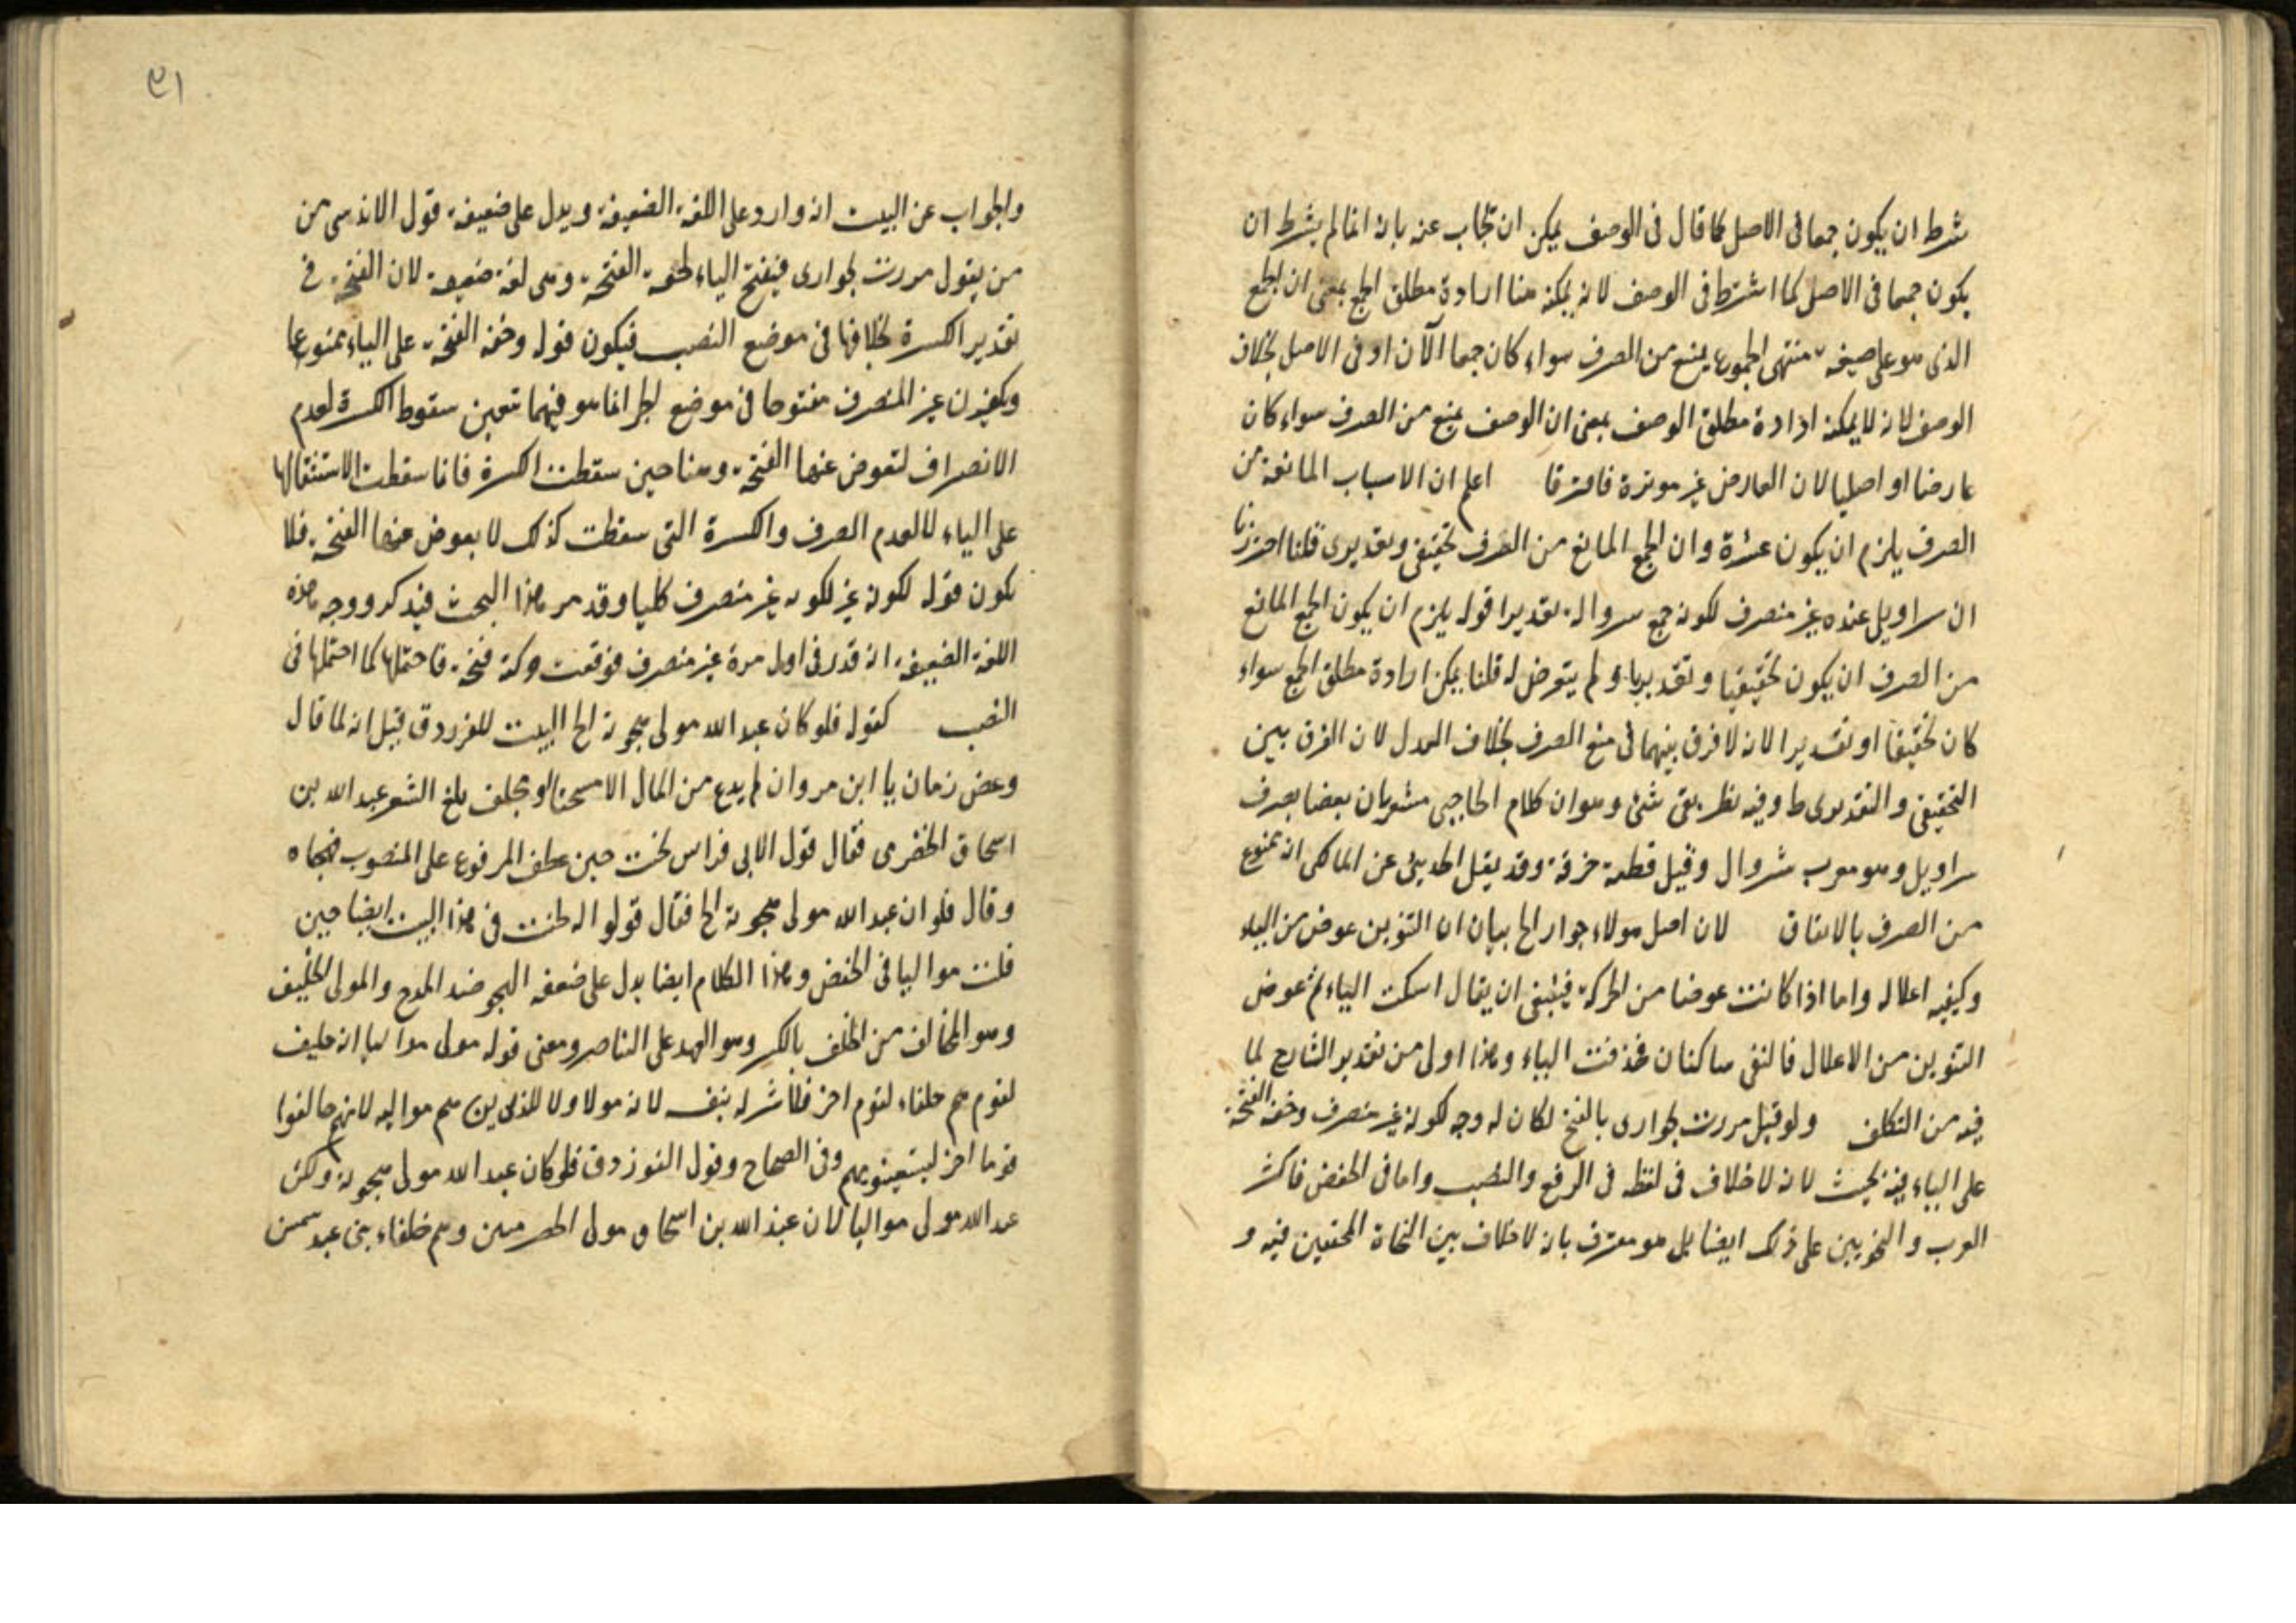 شرط ان يكون جمعا فى الاصل كما قال فى الوصف يمكن ان يجاب عنه بانه انما لم يشرط ان
يكون جمعا فى الاصل كما اشترط فى الوصف لانه يمكنه هنا ارادة مطلق الجمع بمعنى ان الجمع
الذى هو على صيغة منتهى الجموع يمنع من الصرف سواء كان جمعا الآن او فى الاصل بخلاف
الوصف لانه لا يمكنه ارادة مطلق الوصف بمعنى ان الوصف يمنع من الصرف سواء كان
عارضا او اصليا لان العارض غير موثرة فافترقا اعلم ان الاسباب المانعة من
الصرف يلزم ان يكون عشرة وان الجمع المانع من الصرف تحقيقى وتقديرى قلنا احترزنا
ان سراويل عنده غير منصرف لكونه جمع سروالة تقديرا قوله يلزم ان يكون الجمع المانع
من الصرف ان يكون تحقيقيا وتقديريا ولم يتعرض له قلنا يمكن ارادة مطلق الجمع سواء
كان تحقيقا او تقديرا لانه لا فرق بينهما فى منع الصرف بخلاف العدل لان الفرق بين
التحقيقى والتقديرى ط وفيه نظر بقى شئ وهو ان كلام الحاجبى مشعر بان بعضا يصرف
سراويل وهو معرب شروال وقيل قطعة خرقة وقد ينقل الحديثى عن المالكى انه ممنوع
من الصرف بالاتفاق لان اصل هولاء جوار الخ بيان ان التنوين عوض من الياء
وكيفية اعلاله واما اذا كانت عوضا من الحركة فينبغى ان يقال اسكنت الياء ثم عوض
التنوين من الاعلال فالتقى ساكنان فحذفت الياء وهذا اولى من تقدير الشارح لما
فيه من التكلف ولو قيل مررت بجوارى بالفتح لكان له وجه لكونه غير منصرف وخفة الفتحة
على الياء فيه بحيث لانه لا خلاف فى لفظه فى الرفع والنصب واما فى الخفض فاكثر
العرب والنحويين على ذلك ايضا بل هو معترف بانه لا خلاف بين النحاة المحققين فيه و
٣١
والجواب عن البيت انه وارد على اللغة الضعيفة ويدل على ضعيفة قول الاندلسى من
من يقول مررت بجوارى فيفتح الياء لخفة الفتحة وهى لغة ضعيفة لان الفتحة فى
تقدير الكسرة بخلافها فى موضع النصب فيكون قوله وخفة الفتحة على الياء ممنوعا
وكون غير المنصرف مفتوحا فى موضع الجر انما هو فيما تعين سقوط الكسرة لعدم
الانصراف لتعوض عنها الفتحة وهنا حين سقطت الكسرة فانما سقطت لاستثقالها
على الياء لا لعدم الصرف والكسرة التى سقطت كذلك لا يعوض عنها الفتحة فلا
يكون قوله لكونه غير لكونه غير منصرف كليا وقد مر هذا البحث فيذكر ووجه هذه
اللغة الضعيفة انه قدر فى اول مرة غير منصرف فوقعت حركته فتحة فاحتملها كما احتملها فى
النصب كقوله فلو كان عبد الله مولى هجوته الخ البيت للفرزدق قيل انه لما قال
وعض زمان يا ابن مروان لم يدع من المال الا مسحتا او مجلف بلغ الشعر عبد الله بن
اسحاق الحضرمى فقال قول الابى فراس لحنت حين عطف المرفوع على المنصوب فهجاه
وقال فلو ان عبد الله مولى هجوته الخ فقال قولوا له لحنت فى هذا البيت ايضا حين
قلت مواليا فى الخفض وهذا الكلام ايضا يدل على ضعفه الهجو ضد المدح والمولى الحليف
وهو المحالف من الحلف بالكسر وهو العهد على التناصر ومعنى قوله مولى مواليا انه حليف
لقوم هم حلفاء لقوم اخر فلا شرله بنفسه لانه مولا ولا للذين هم مواليه لانهم حالفوا
قوما اخر ليستعينو بهم وفى الصحاح وقول الفرزدق فلو كان عبد الله مولى هجوته ولكن
عبد الله مولى مواليا لان عبد الله بن اسحاق مولى الحضرميين وهم حلفاء بنى عبد شمس